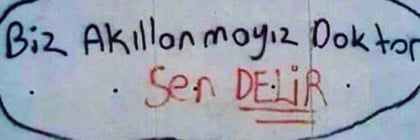 Biz Akıllonmoyız Doktor
Sen DELİR